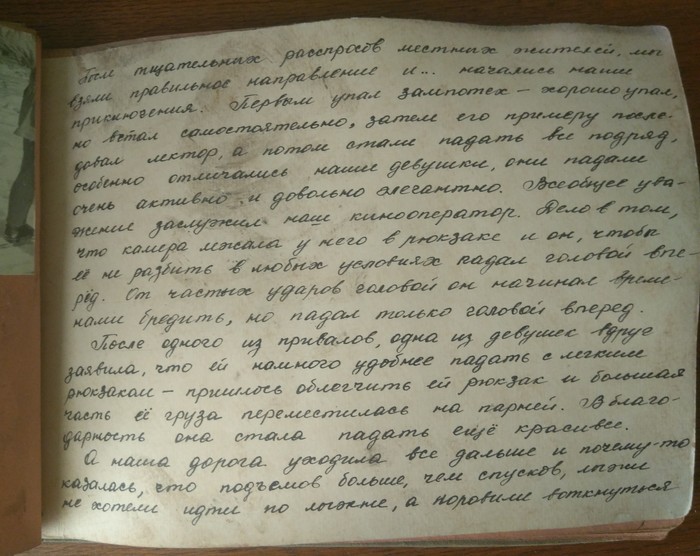 были тщательных расспросов местных жителей, мы
взяли правильное направление и... начались наши
приключения. Первым упал зампотех – хорошо упал,
но встал самостоятельно, затем его примеру после-
довал лектор, а потом стали падать все подряд,
особенно отличались наши девушки, они падали
очень активно и довольно элегантно. Всеобщее ува-
жение заслужил наш кинооператор. Дело в том,
что камера лежала у него в рюкзаке и он, чтобы
её не разбить в любых условиях падал головой впе-
рёд. От частых ударов головой он начинал време-
нами бредить, но падал только головой вперед.
После одного из привалов, одна из девушек вдруг
заявила, что ей намного удобнее падать с легким
рюкзаком – пришлось облегчить ей рюкзак и большая
часть её груза переместилась на парней. В благо-
дарность она стала падать ещё красивее.
А наша дорога уходила все дальше и почему-то
казалась, что подъемов больше, чем спусков, лыжи
не хотели идти по лыжне, а норовили воткнуться